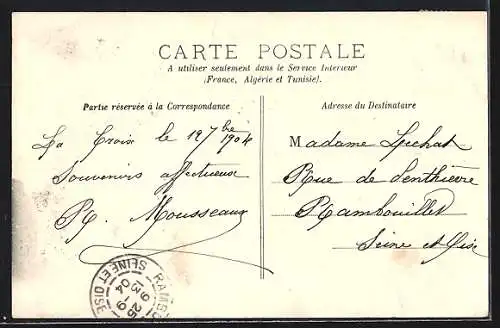 CARTE POSTALE
A utiliser seulement dans le Service Interieur
(France, Algérie et Tunisie).
Partie réservée à la Correspondance
La Croix le 19 7bre 1904
Souvenirs affectueux
R. Mousseaux
Adresse du Destinataire
Madame Lechat
Rue de Penthièvre
Rambouillet
Seine et Oise
SEINE ET OISE
9 04